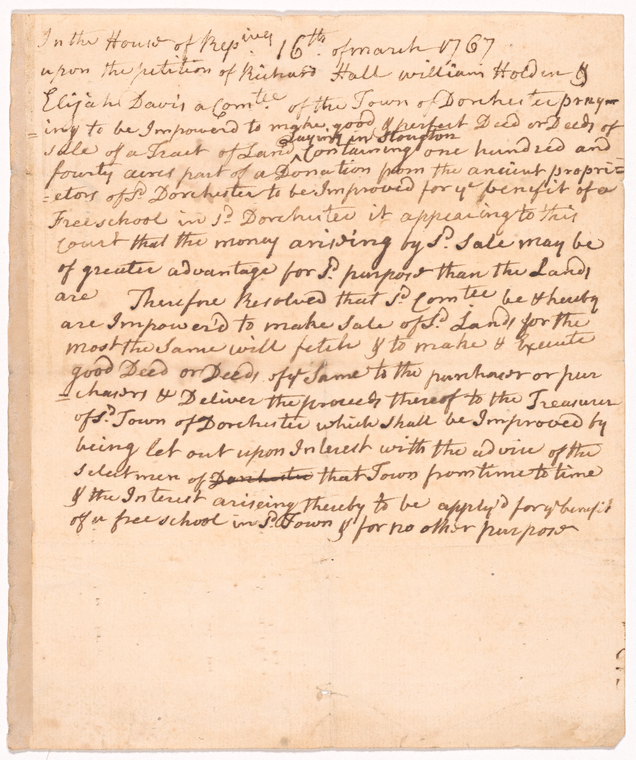 In the House of Repives 16th of march 1767
upon the petition of Richard Hall william Holden &
Elijah Davis a Comtee of the Town of Dorchester pray-
=ing to be Impowerd to make good & perfect Deed or Deeds of
Laying in Stoughton
sale of a Tract of Land ^ Containing one hundred and
fourty acres part of a Donation from the ancient propri=
=etors of sd Dorchester to be Improved for ye benefit of a
Free school in sd Dorchester it appearing to this
Court that the money arising by sd Sale may be
of greater advantage for sd purpose than the Lands
are Therefore Resolved that sd Comtee be & hereby
are Impower'd to make Sale of sd Lands for the
most the Same will fetch & to make & Execute
good Deed or Deeds of ye Same to the purchaser or pur
=chasers & Deliver the proceeds thereof to the Treasurer
of sd Town of Dorchester which shall be Improved by
being let out upon Interest with the advice of the
Selectmen of Dorchester that Town from time to time
& the Interest ariseing thereby to be apply'd for ye benefit
of a free school in sd Town & for no other purpose